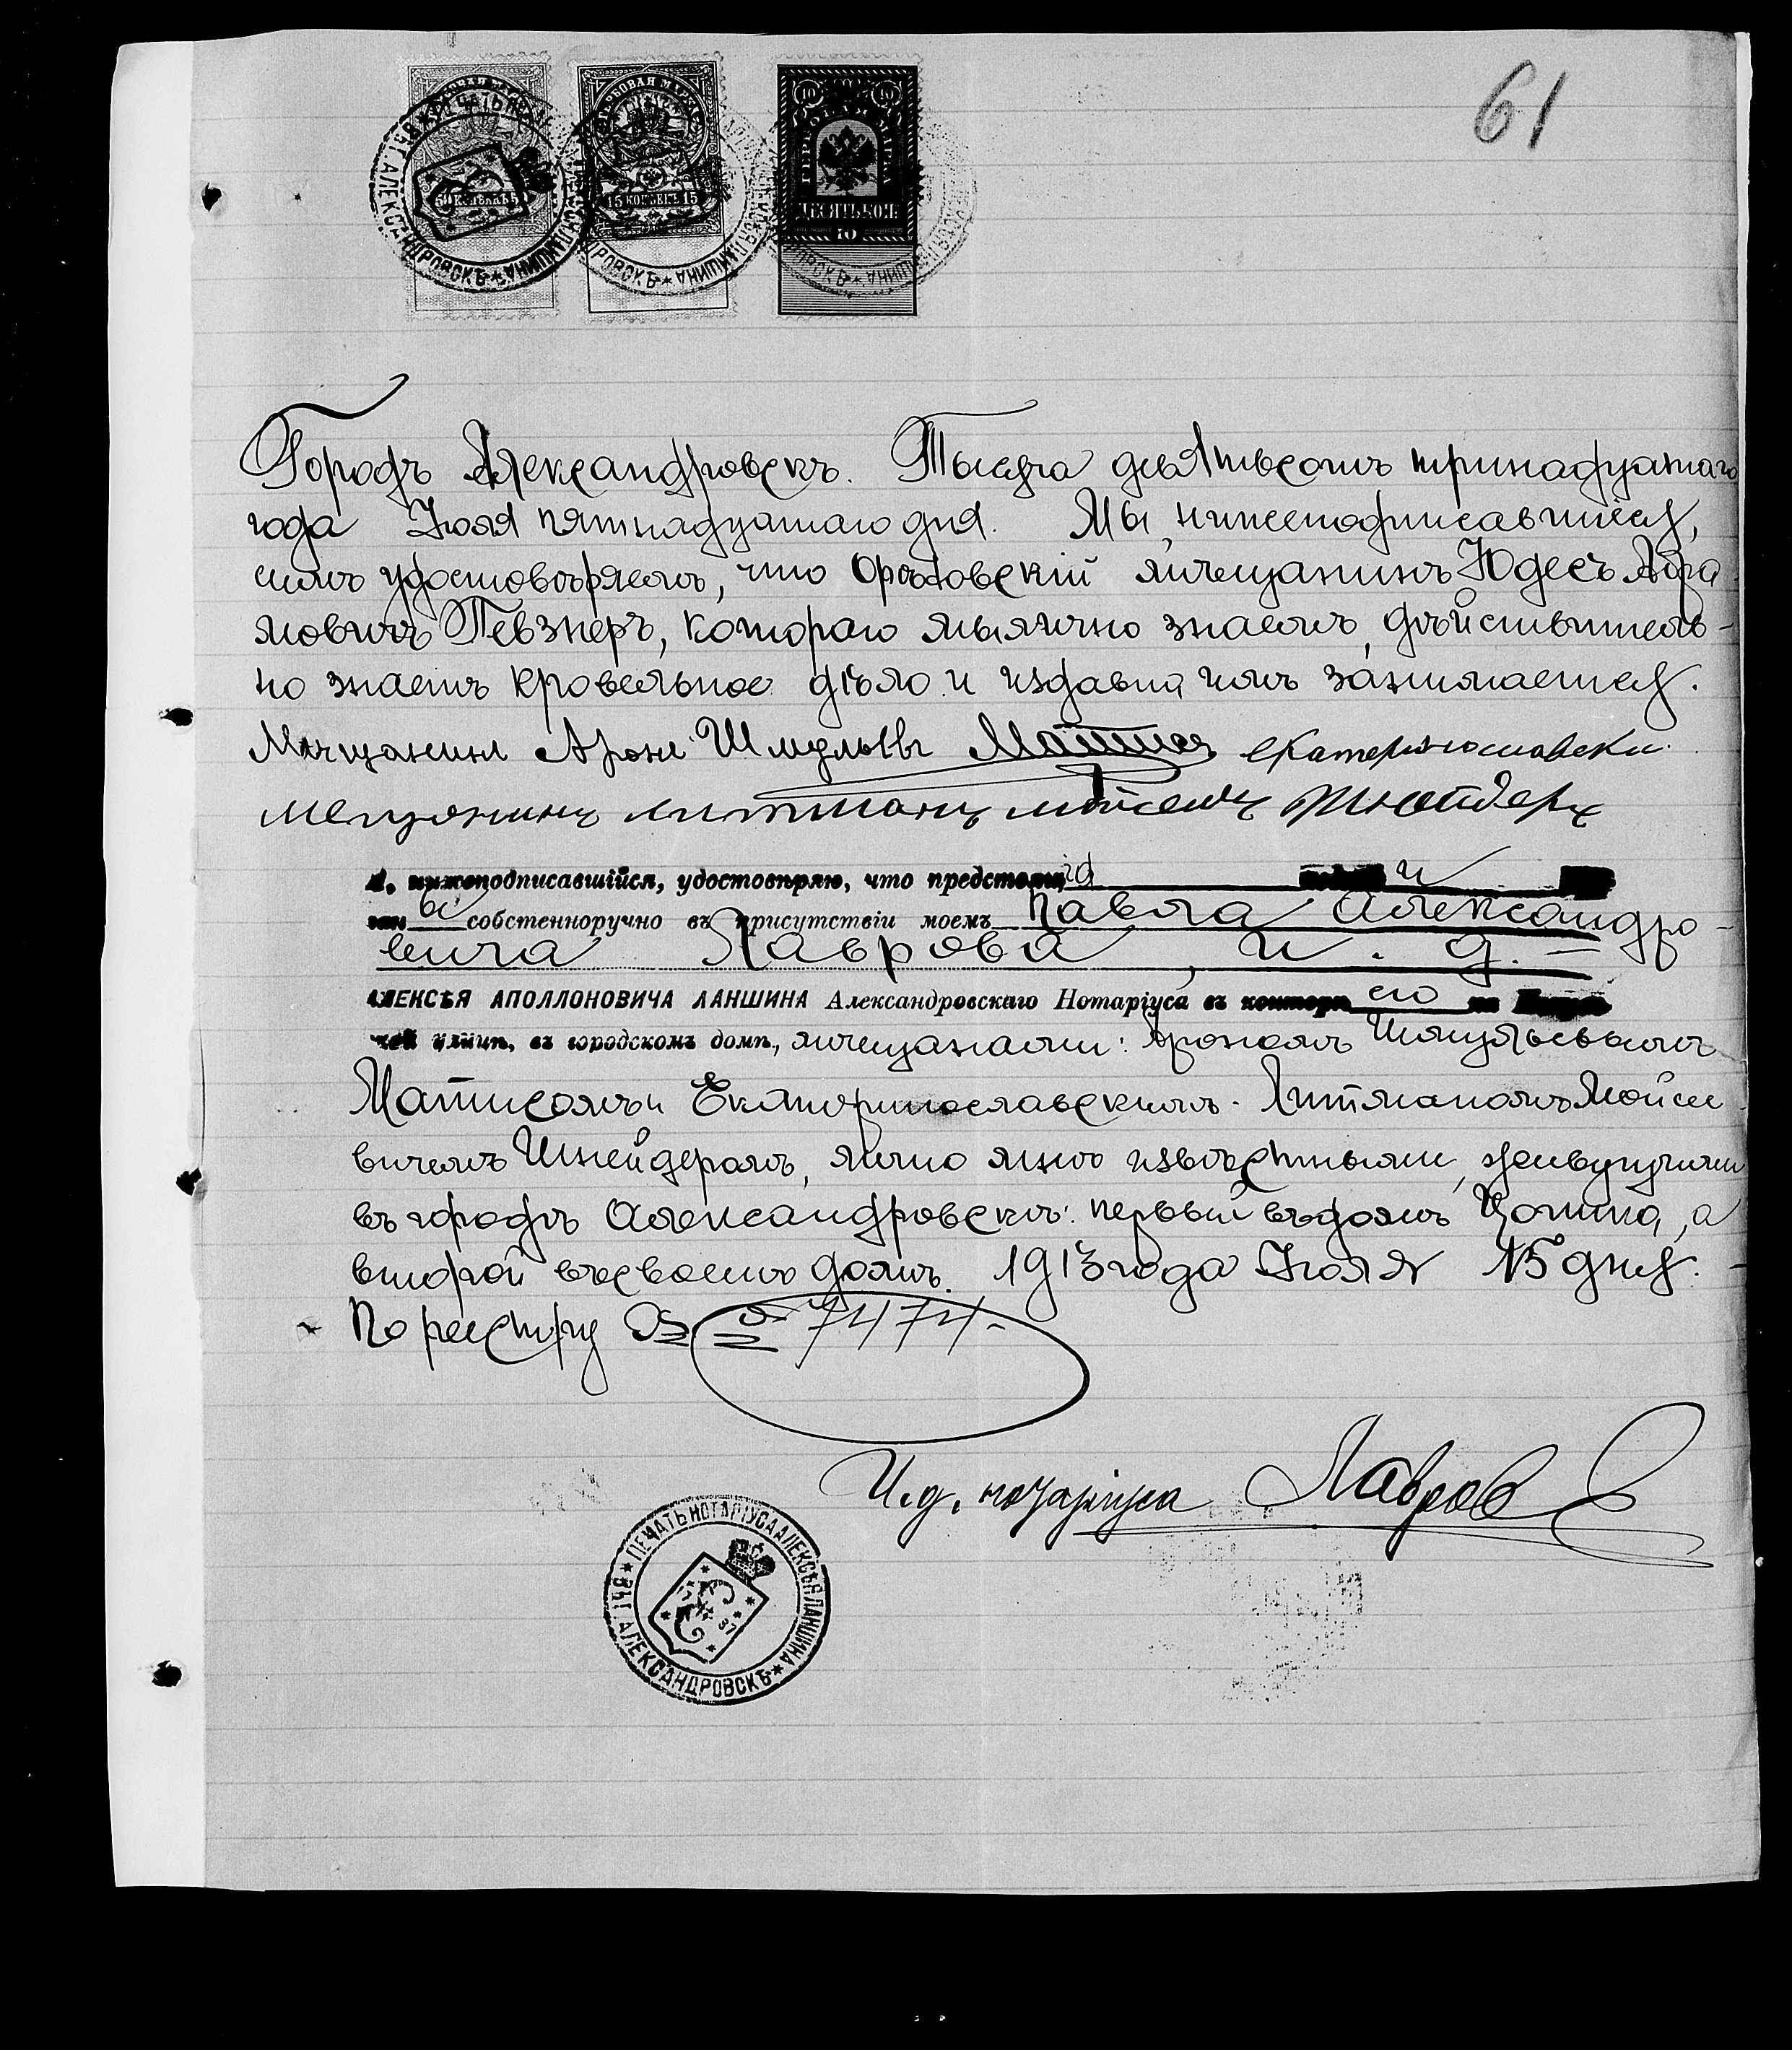 61
ГЕРБОВАЯ МАРКА
50 КОПѢЕКЪ 50
15 КОПѢЕКЪ 15
ГЕРБОВАЯ МАРКА
ДЕСЯТЬ КОП.
10
Городъ Александровскъ. Тысяча девятьсотъ тринадцатаго
года Іюля пятнадцатаго дня. Мы, нижеподписавшіеся,
симъ удостовѣряемъ, что Орѣховскій мѣщанинъ Юдесъ Абра-
мовичъ Певзнеръ, котораго мы лично знаемъ, дѣйствитель-
но знаетъ кровельное дѣло и издавна имъ занимается.
Мѣщанинъ Аронъ Шмульевъ Матисъ екатеринославски
мещанинъ литманъ мойсеевичъ Шнейдеръ
Я, нижеподписавшійся, удостовѣряю, что предстоящая подпись
сдѣланы собственноручно въ присутствіи моемъ Павла Александро-
вича Лаврова, и. д.
АЛЕКСѢЯ АПОЛЛОНОВИЧА ЛАНШИНА Александровскаго Нотаріуса въ конторѣ его на
улицѣ, въ городскомъ домѣ, мѣщанами: Арономъ Шмульевымъ
Матисомъ и Екатеринославскимъ Литманомъ Мойсее-
вичемъ Шнейдеромъ, лично мнѣ извѣстными, живущими
въ городѣ Александровскѣ: первый въ домѣ а
второй въ своемъ домѣ. 1913 года Іюля 15 дня.
По реестру № 7474.
И. д. нотаріуса Лавровъ
ПЕЧАТЬ НОТАРІУСА АЛЕКСѢЯ ЛАНШИНА * ВЪ Г. АЛЕКСАНДРОВСКѢ *